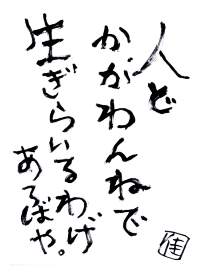 人ど
かがわんねで
生ぎらいるわげ
あろばや。
佳